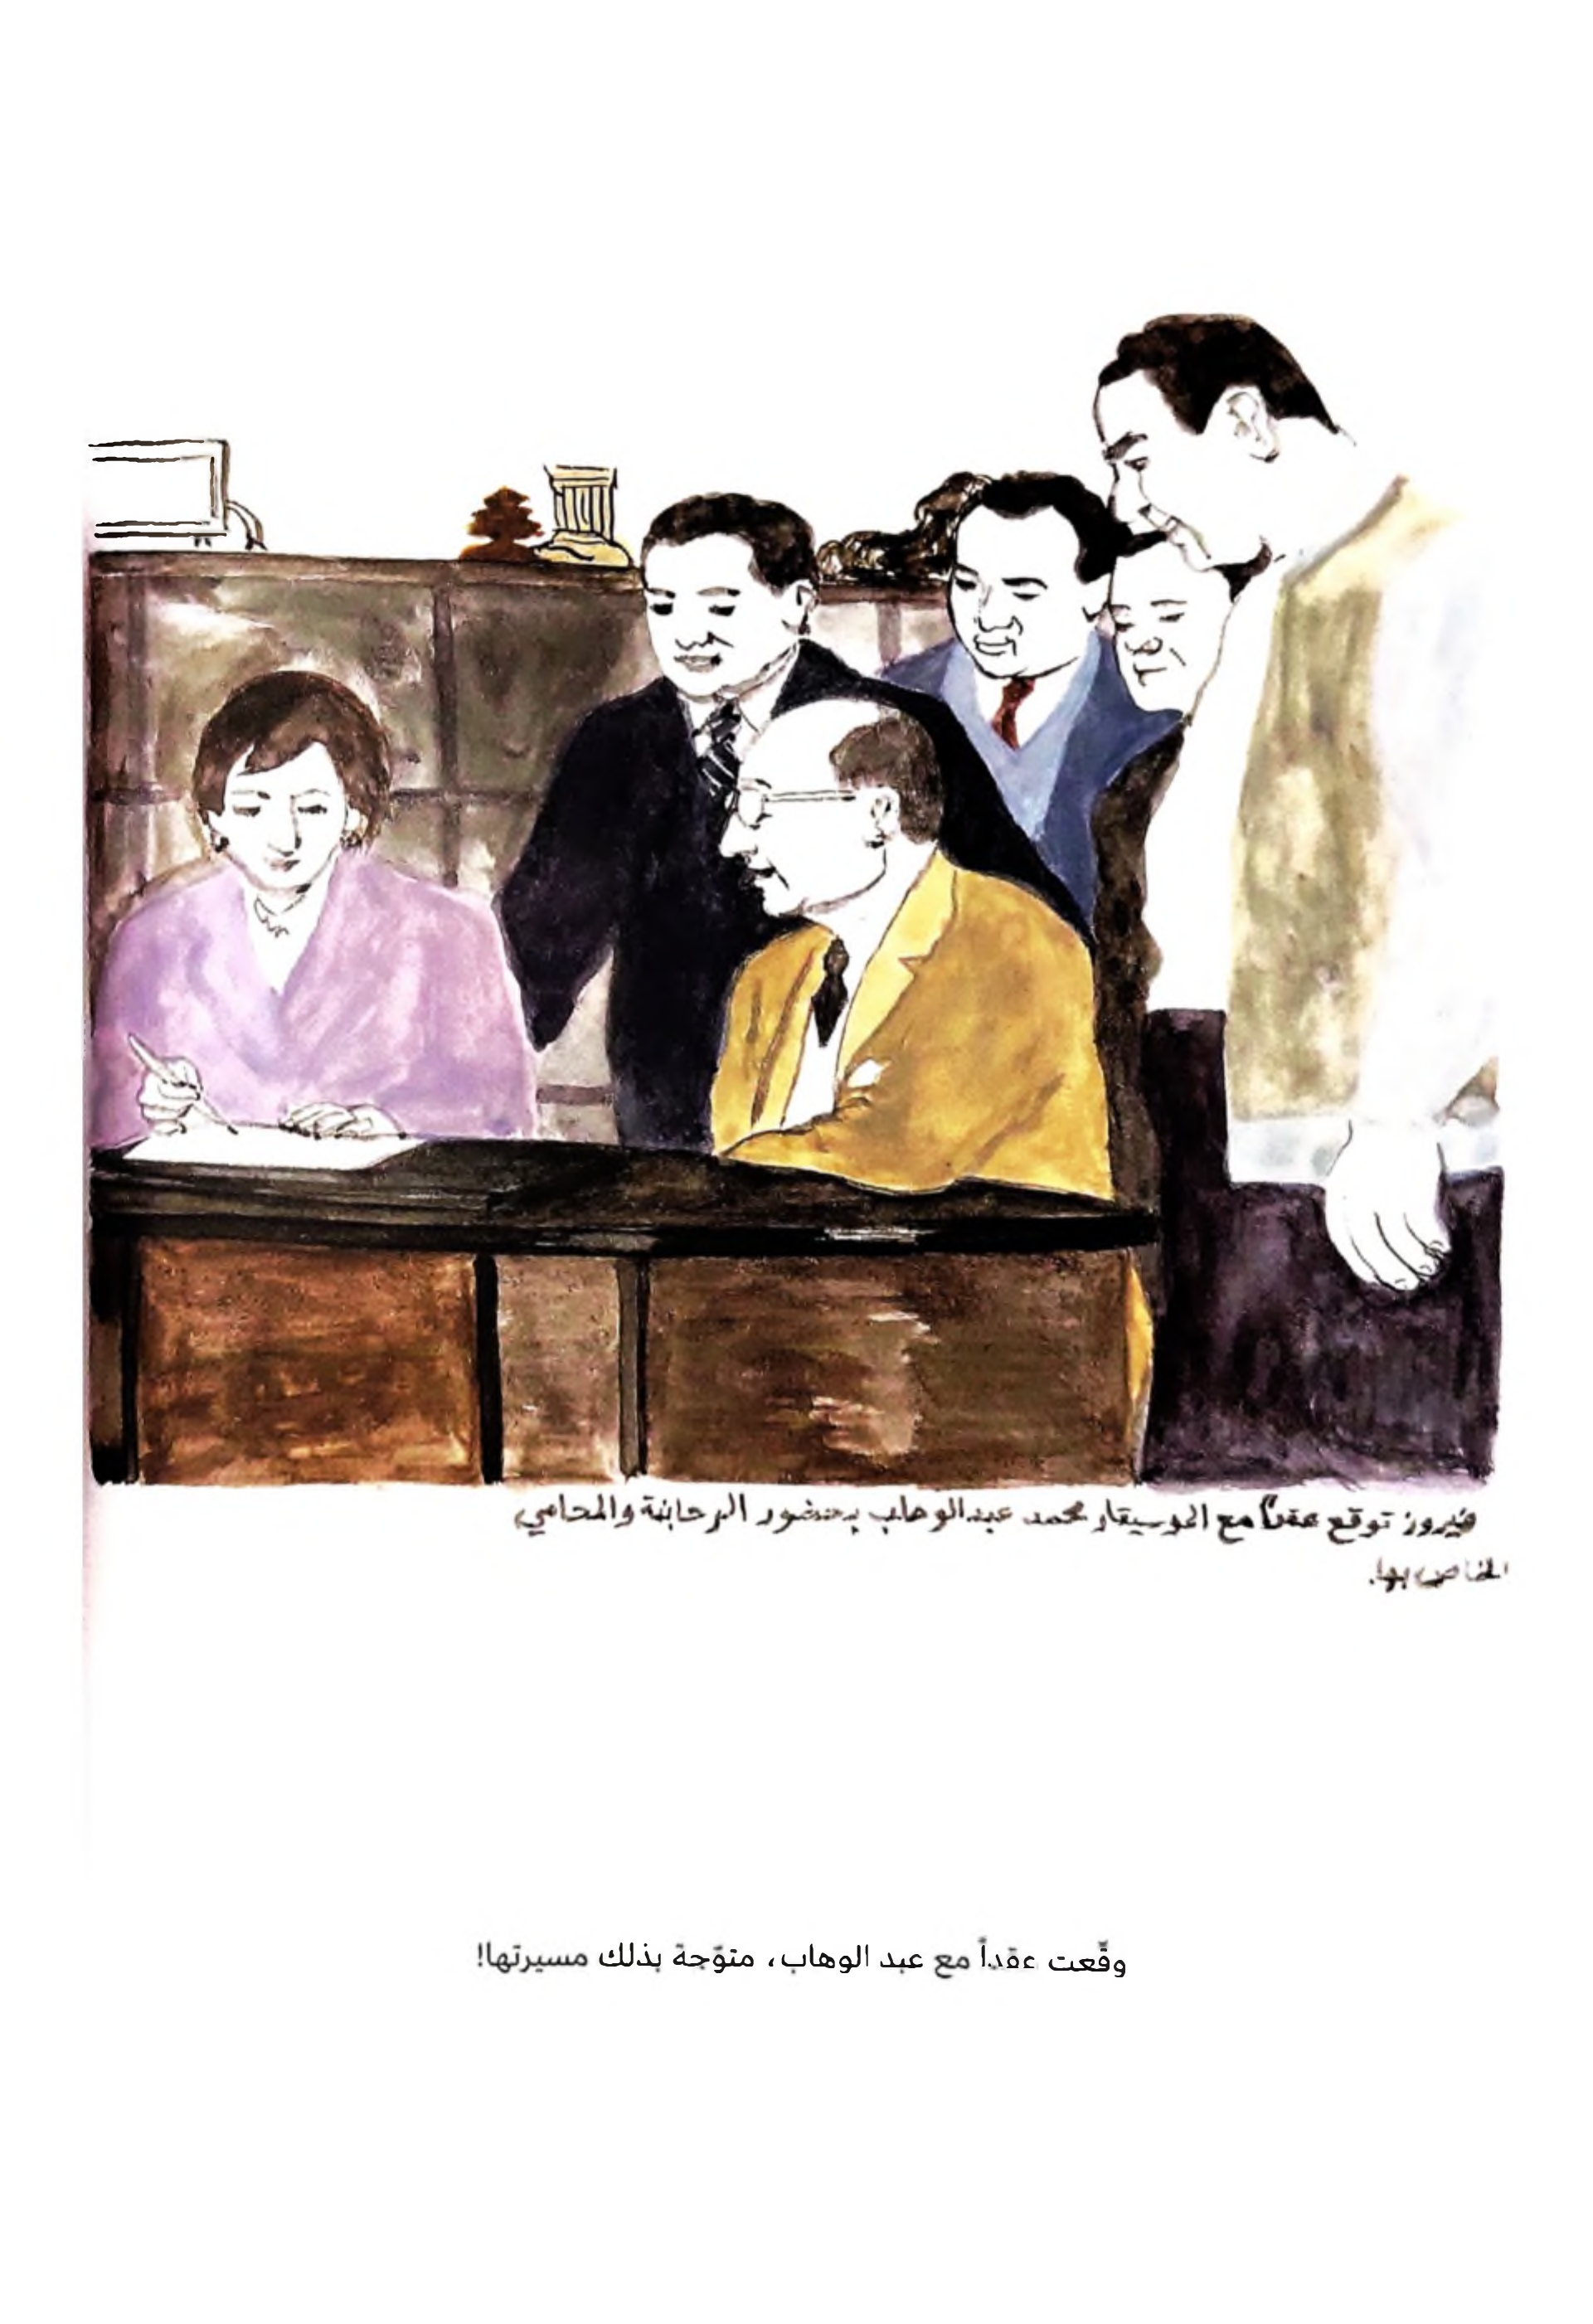 فيروز توقع عقداً مع الموسيقار محمد عبدالوهاب بحضور الرحابنة والمحامي
الخاص بها.
وقّعت عقداً مع عبد الوهاب، متوّجة بذلك مسيرتها!